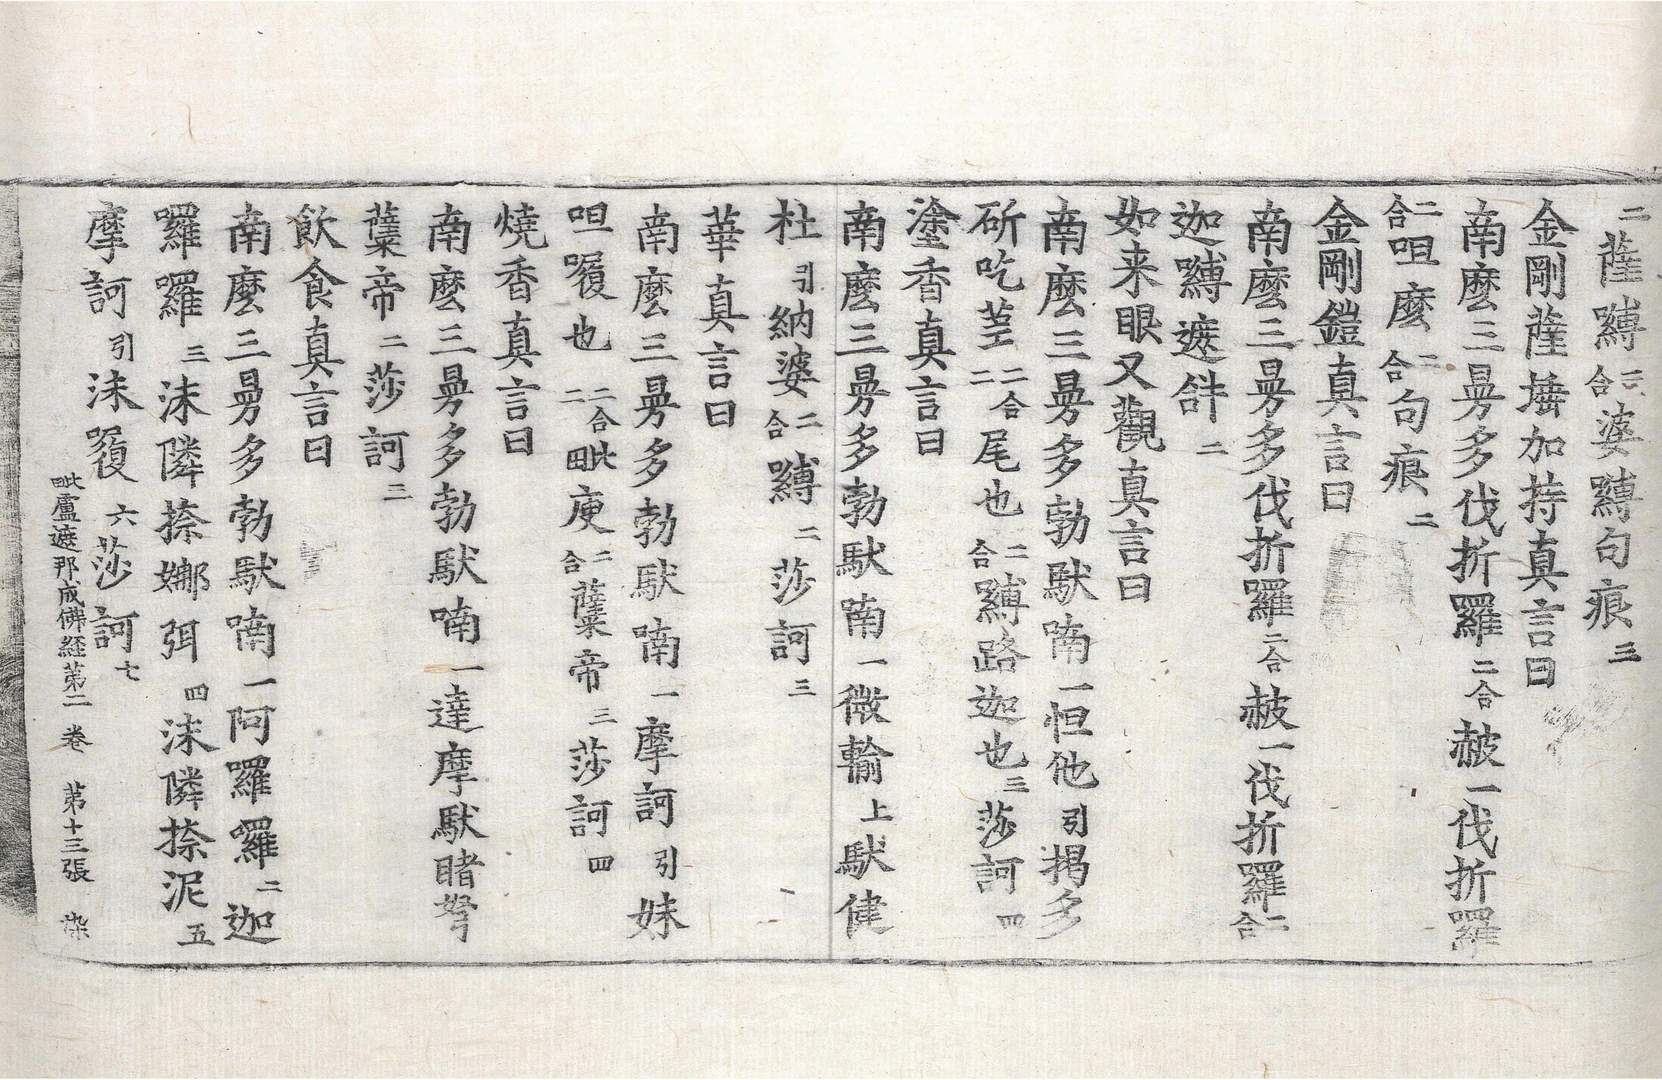 二薩嚩二合婆嚩句痕三
金剛薩埵加持真言曰
南麽三曼多伐折羅二合赧一伐折羅
二合呾麽二合句痕二
金剛鎧真言曰
南麽三曼多伐折羅二合赧一伐折羅二合
迦嚩遮𤙖二
如来眼又觀真言曰
南麽三曼多勃馱喃一怛他引揭多
斫吃蒭二合二尾也二合嚩路迦也三莎訶四
塗香真言曰
南麽三曼多勃馱喃一微輸上馱健
杜引納婆二合嚩二莎訶三
華真言曰
南麽三曼多勃馱喃一摩訶引妹
呾囉也二合二毗庾二合蘖帝三莎訶四
燒香真言曰
南麽三曼多勃馱喃一達摩馱睹弩
蘖帝二莎訶三
飲食真言曰
南麽三曼多勃馱喃一阿囉囉二迦
囉囉三沬隣捺娜弭四沬隣捺泥五
摩訶引沬囉六莎訶七
毗盧遮那成佛経第二卷 第十三張 染